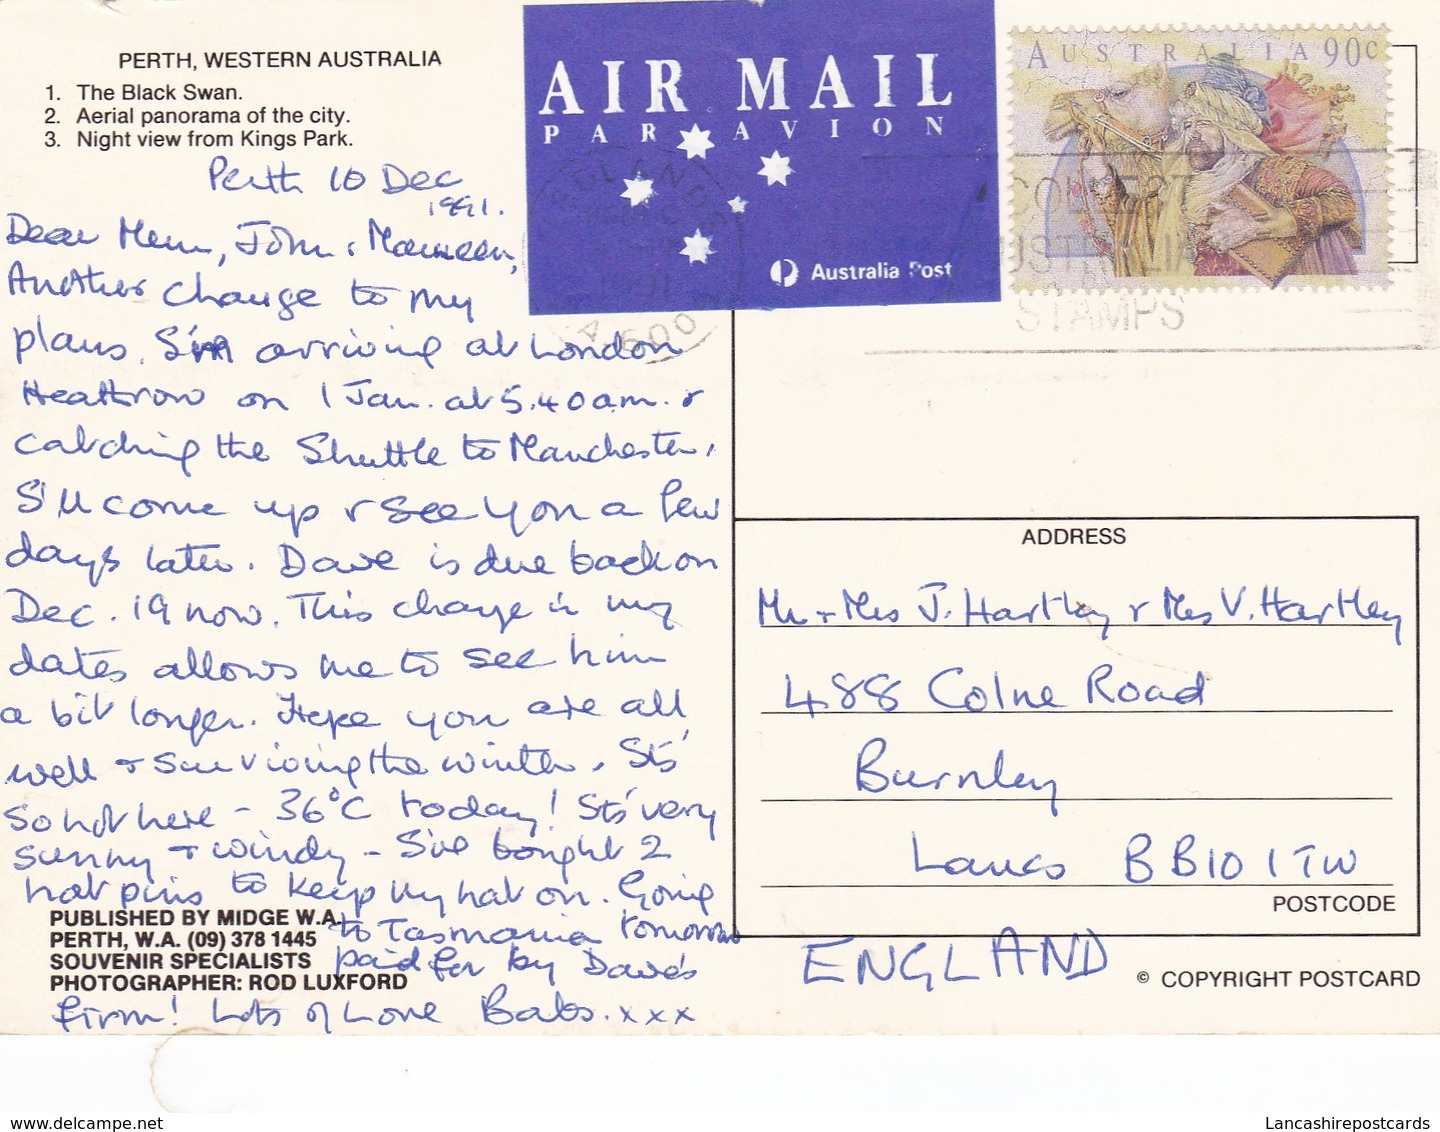 PERTH, WESTERN AUSTRALIA
1. The Black Swan.
2. Aerial panorama of the city.
3. Night view from Kings Park.
Perth 10 Dec
1991.
Dear Mum, John & Maureen,
Another change to my
plans. I'm arriving at London
Heathrow on 1 Jan. at 5.40am. &
catching the Shuttle to Manchester.
I'll come up & see you a few
days later. Dave is due back on
Dec. 19 now. This change in my
dates allows me to see him
a bit longer. Hope you are all
well & surviving the winter. It's
so hot here – 36°C today! It's very
sunny & windy – I've bought 2
hat pins to keep my hat on. Going
to Tasmania tomorrow
paid for by Dave's
firm! Lots of Love Babs. xxx
PUBLISHED BY MIDGE W.A.
PERTH, W.A. (09) 378 1445
SOUVENIR SPECIALISTS
PHOTOGRAPHER: ROD LUXFORD
AIR MAIL
PAR AVION
Australia Post
AUSTRALIA 90c
COLLECT
AUSTRALIAN
STAMPS
6009
ADDRESS
Mr & Mrs J. Hartley & Mrs V. Hartley
488 Colne Road
Burnley
Lancs BB10 1TW
POSTCODE
ENGLAND
© COPYRIGHT POSTCARD
delcampe.net
Lancashirepostcards